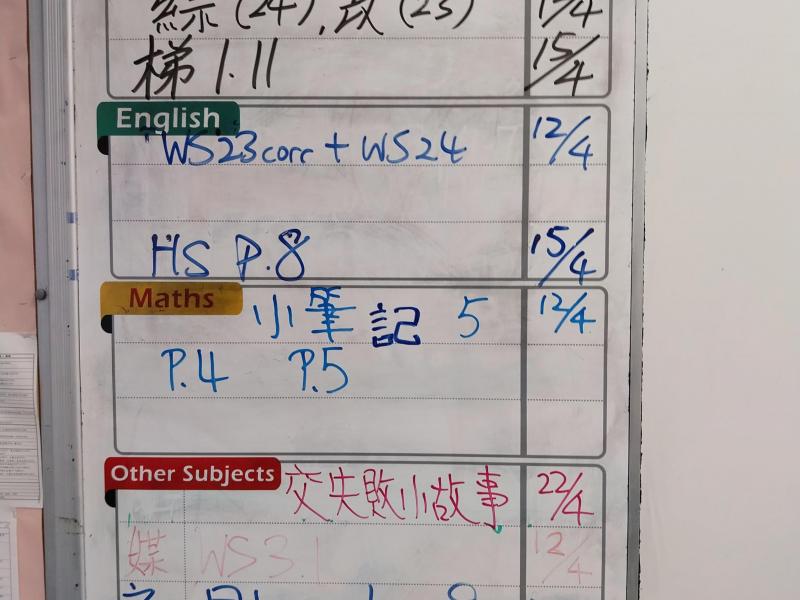 綜(24), 改(23) 15/4
梯 1.11 15/4
English
WS23corr + WS24 12/4
HS P.8 15/4
Maths
小筆記 5 12/4
P.4 P.5
Other Subjects
交失敗小故事 22/4
媒 WS3.1 12/4